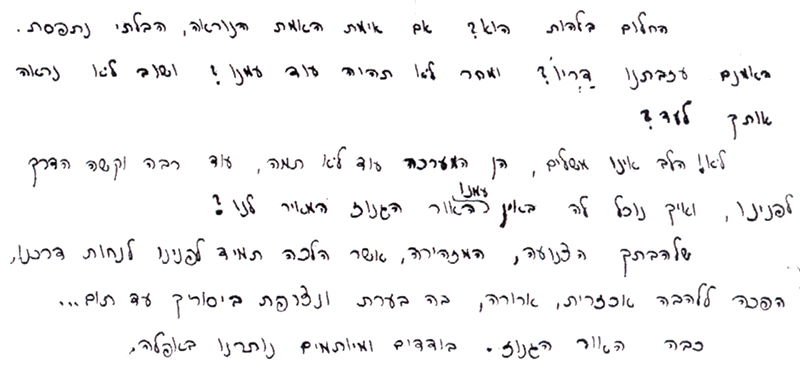 החלום בלהות הוא? אם אימת האמת הנוראה, הבלתי נתפסת.
האמנם עזבתנו דַריו? ומחר לא תהיה עוד עמנו? ושוב לא נראה
אותך לעד?
לא! הלב אינו משלים, הן המערכה עוד לא תמה, עוד רבה וקשה הדרך
לפנינו, ואיך נוכל לה באין עמנו האור הגנוז המאיר לנו?
שלהבתך הצנועה, המזהירה, אשר הלכה תמיד לפנינו לנחות דרכנו,
הפכה ללהבה אכזרית, ארורה, בה בערת ונצרפת ביסוריך עד תום...
כבה האור הגנוז. בודדים ומיותמים נותרנו באפלה.